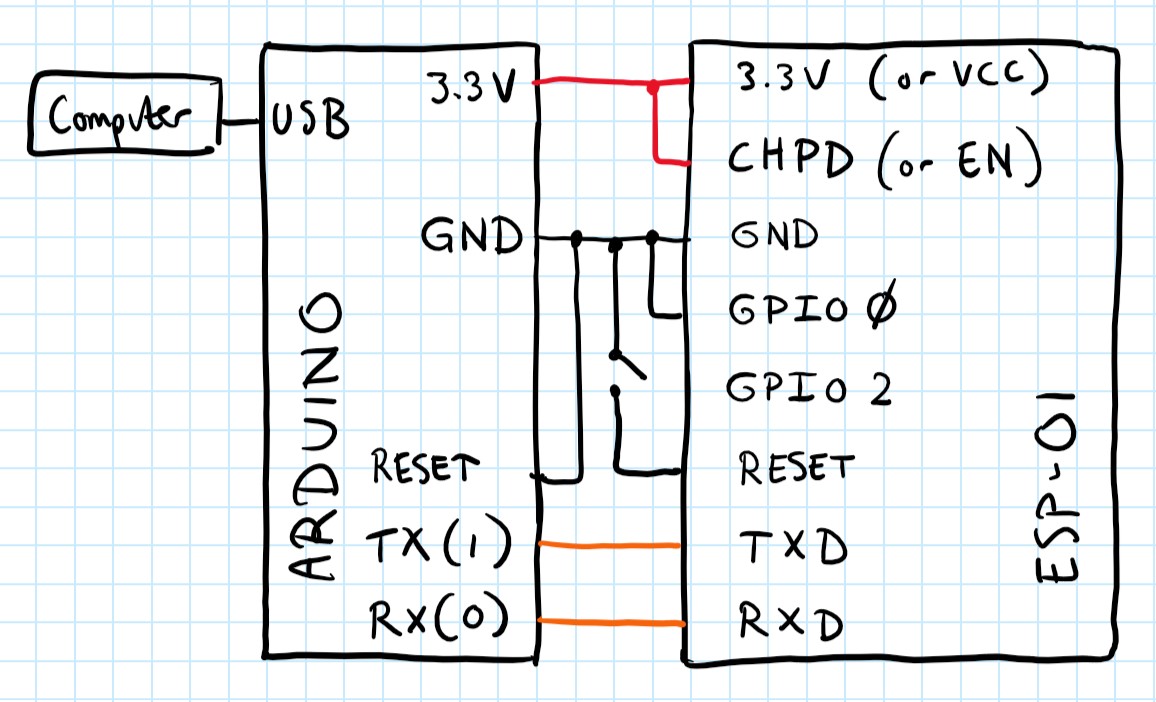 Computer
USB
3.3V
GND
RESET
TX(1)
RX(0)
ARDUINO
3.3V (or VCC)
CHPD (or EN)
GND
GPIO Ø
GPIO 2
RESET
TXD
RXD
ESP-01